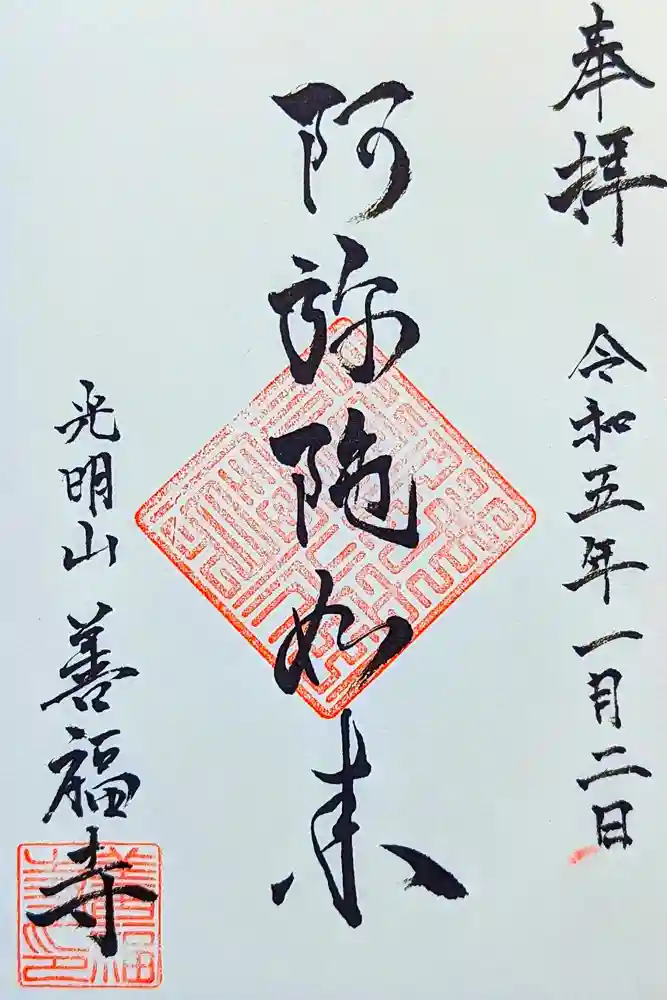 奉拝
令和五年一月二日
阿弥陀如来
光明山 善福寺